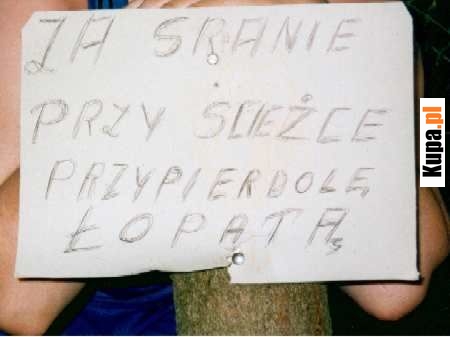 ZA SRANIE
PRZY ŚCIEŻCE
PRZYPIERDOLĘ
ŁOPATĄ
Kupa.pl